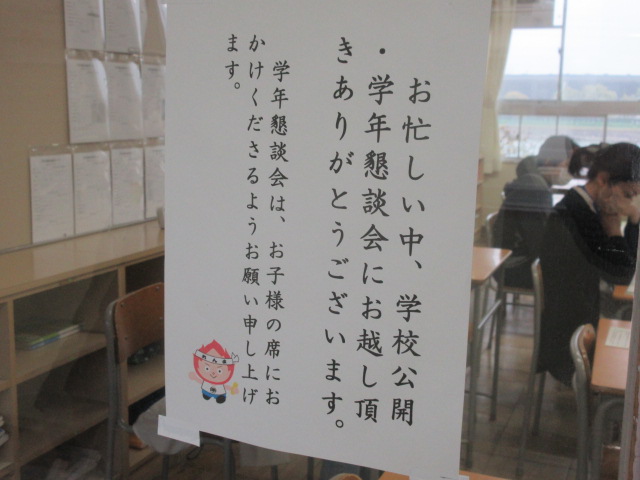 お忙しい中、学校公開
・学年懇談会にお越し頂
きありがとうございます。
学年懇談会は、お子様の席にお
かけくださるようお願い申し上げ
ます。